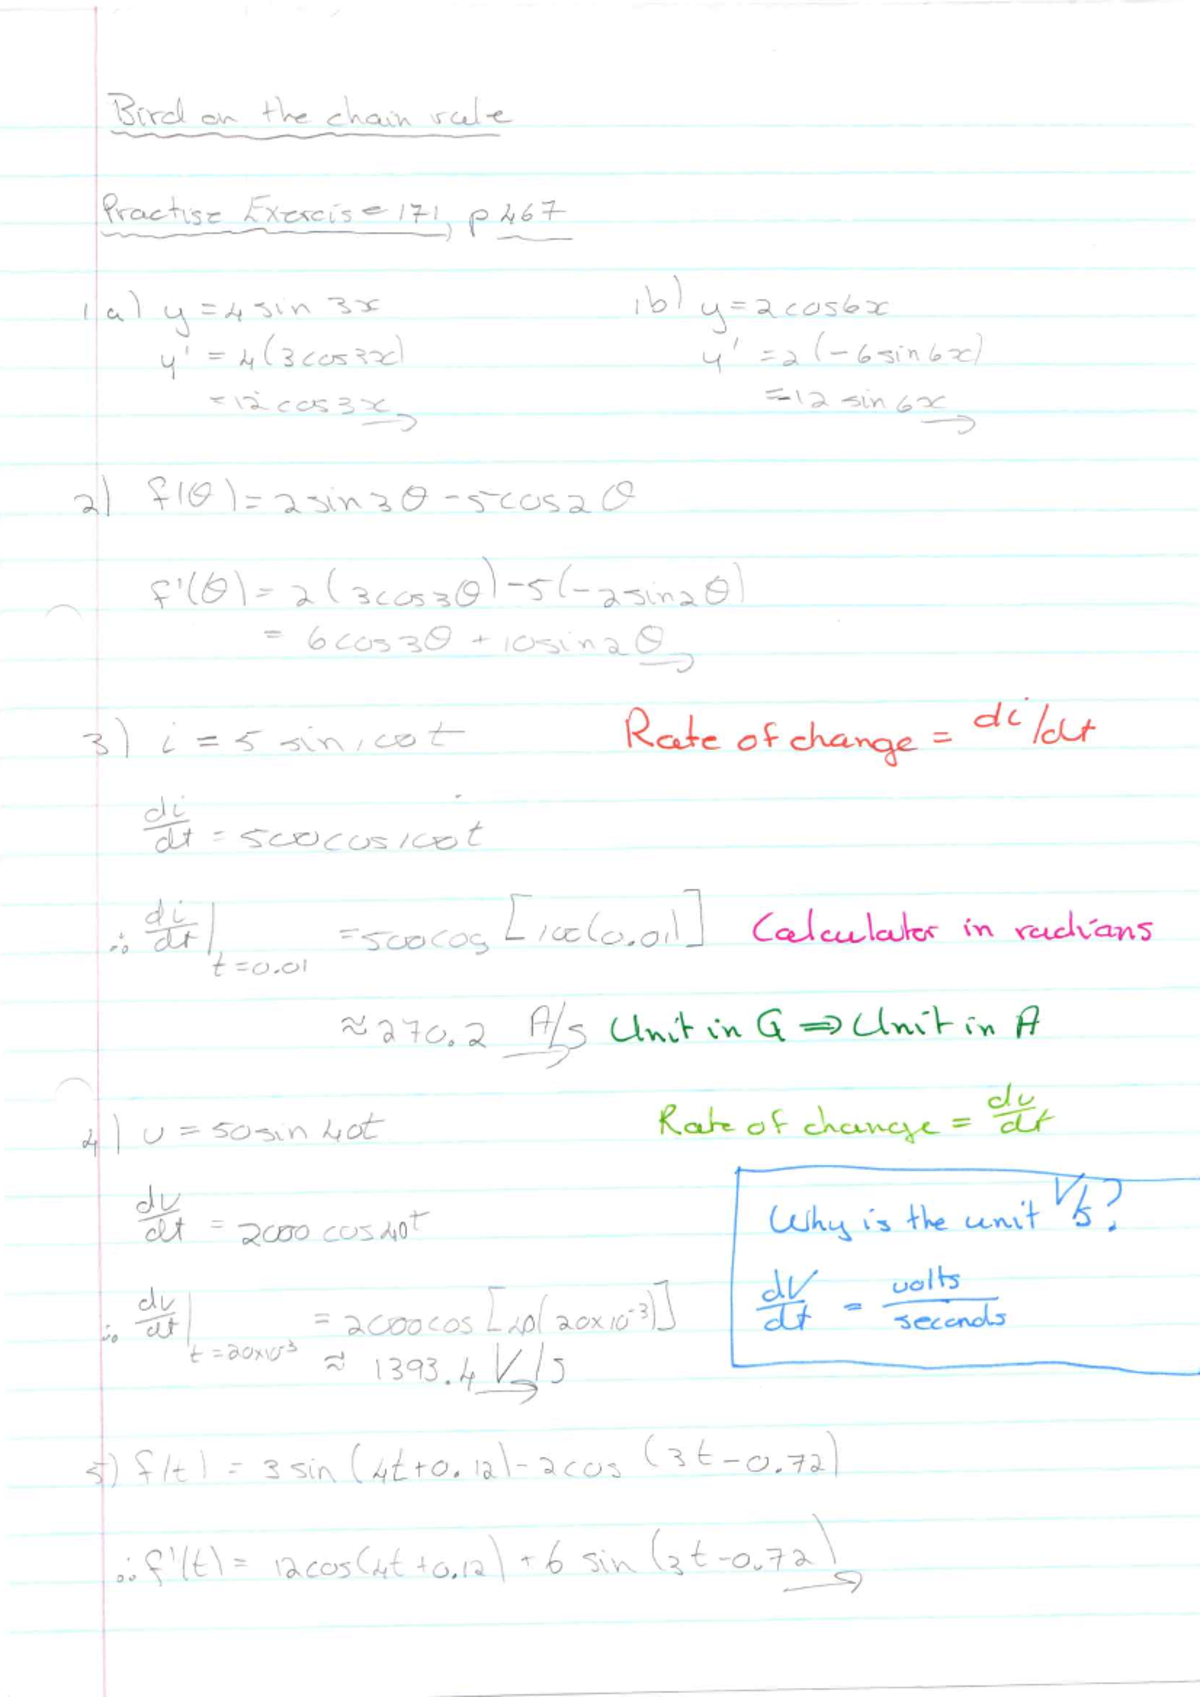 Bird on the chain rule
Practise Exercise 171, p467
1a) y = 4 sin 3x
y' = 4(3cos3x)
= 12 cos 3x
1b) y = 2cos6x
y' = 2(-6sin6x)
= -12 sin 6x
2) f(θ) = 2sin3θ - 5cos2θ
f'(θ) = 2(3cos3θ) - 5(-2sin2θ)
= 6cos3θ + 10sin2θ
3) i = 5 sin100t Rate of change = di/dt
di/dt = 500cos100t
∴ di/dt|t=0.01 = 500cos[100(0.01)] Calculator in radians
≈ 270.2 A/s Unit in Q ⇒ Unit in A
4) v = 50sin40t Rate of change = dv/dt
dv/dt = 2000 cos40t
∴ dv/dt|t=20x10⁻³ = 2000cos[40(20x10⁻³)]
≈ 1393.4 V/s
Why is the unit V/s?
dV/dt = volts/seconds
5) f(t) = 3sin(4t+0.12)-2cos(3t-0.72)
∴ f'(t) = 12cos(4t+0.12)+6 sin(3t-0.72)